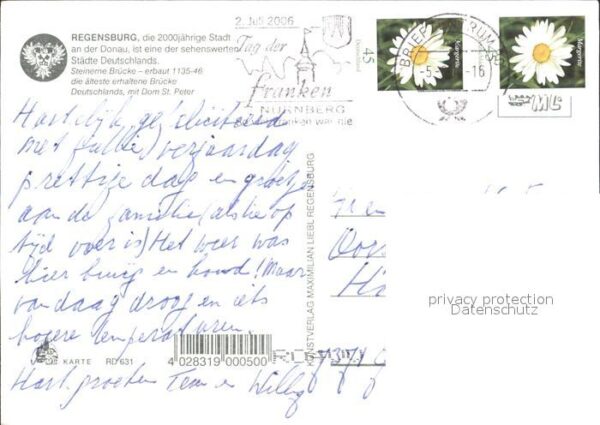 REGENSBURG, die 2000jährige Stadt
an der Donau, ist eine der sehenswerten
Städte Deutschlands.
Steinerne Brücke – erbaut 1135-46
die älteste erhaltene Brücke
Deutschlands, mit Dom St. Peter
2. Juli 2006
Tag der
franken
NÜRNBERG
45
Deutschland
Margerite
Margerite
BRIEF
Hartelijk gefeliciteerd
met jullie verjaardag
prettige dag en groetjes
aan de familie (als die op
tijd over is) Het weer was
hier buiig en koud! Maar
vandaag droog en iets
hogere temperaturen.
Hart. groeten Team en Willy
KUNSTVERLAG MAXIMILIAN LIEBL REGENSBURG
KARTE RD 631
4 028319 000500
privacy protection
Datenschutz